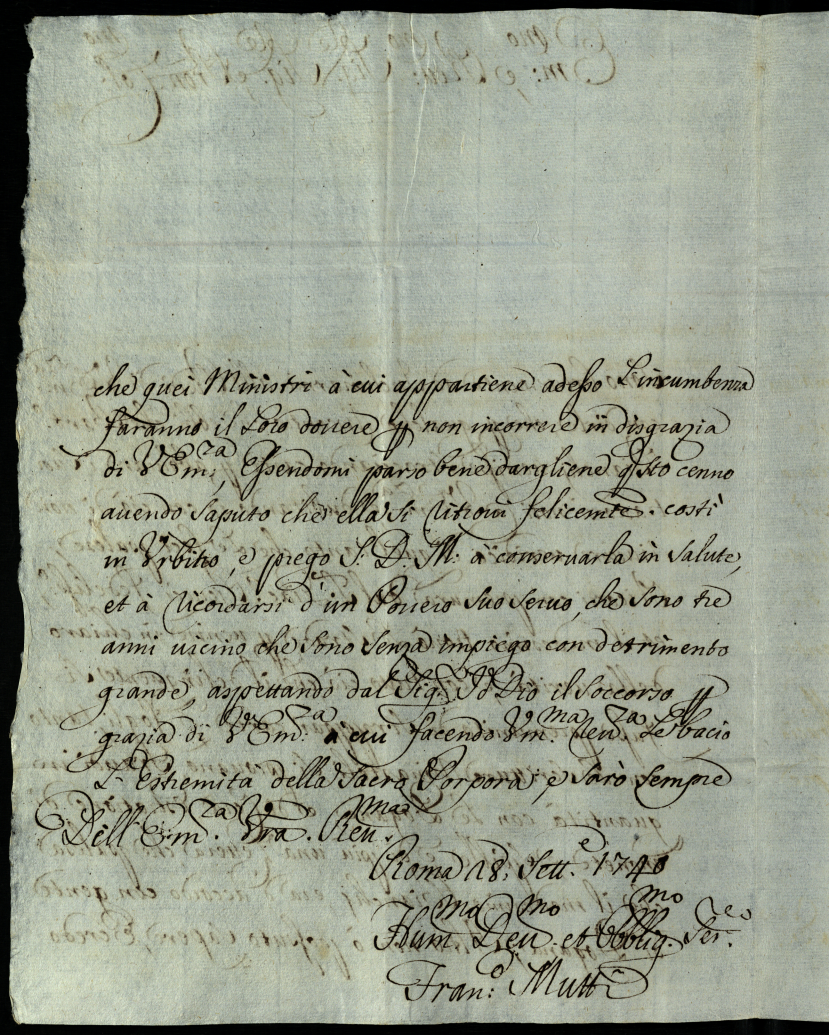 che quei Ministri à cui appartiene adesso L'incumbenza
faranno il Loro douere p non incorrere in disgrazia
di VEm:za, Essendomi parso bene dargliene qsto cenno
auendo saputo che ella si ritroui felicemte. costì
in Vrbino, e priego S: D. M: à conseruarla in salute,
et à ricordarsi d'un Pouero suo seruo, che sono tre
anni uicino che sono senza impiego con detrimento
grande, aspettando dal Sig: Id'Dio il soccorso p
grazia di VEm:za à cui facendo Vm.ma Reu.za Le bacio
L'Estremità della Sacra Porpora, e sarò sempre
Dell'Em.za Vra. Reu.ma
Roma 18: Sett.e 1740
Hum.mo Deu.mo et Obblig.mo Ser.re
Fran:o Mutti